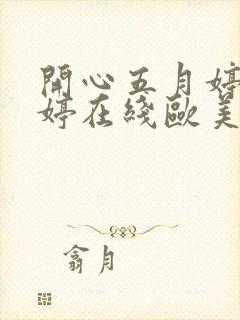 開心五月婷
婷在綫歐美
翕月